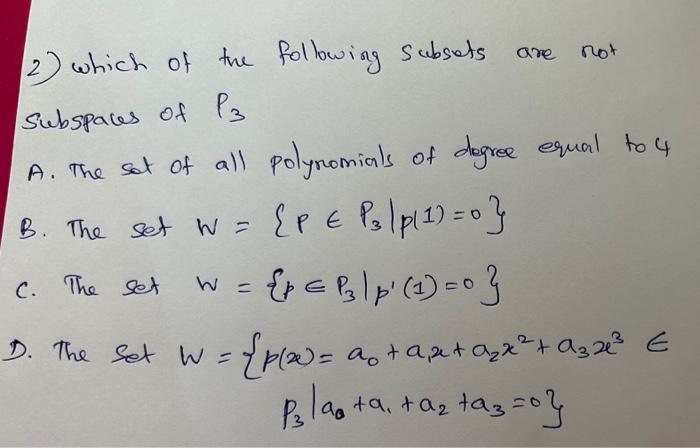 2) which of the following subsets are not
subspaces of P₃
A. The set of all polynomials of degree equal to 4
B. The set W = {P ∈ P₃ | p(1) = 0}
C. The set W = {p ∈ P₃ | p'(1) = 0}
D. The set W = {p(x) = a₀ + a₁x + a₂x² + a₃x³ ∈
P₃ | a₀ + a₁ + a₂ + a₃ = 0}